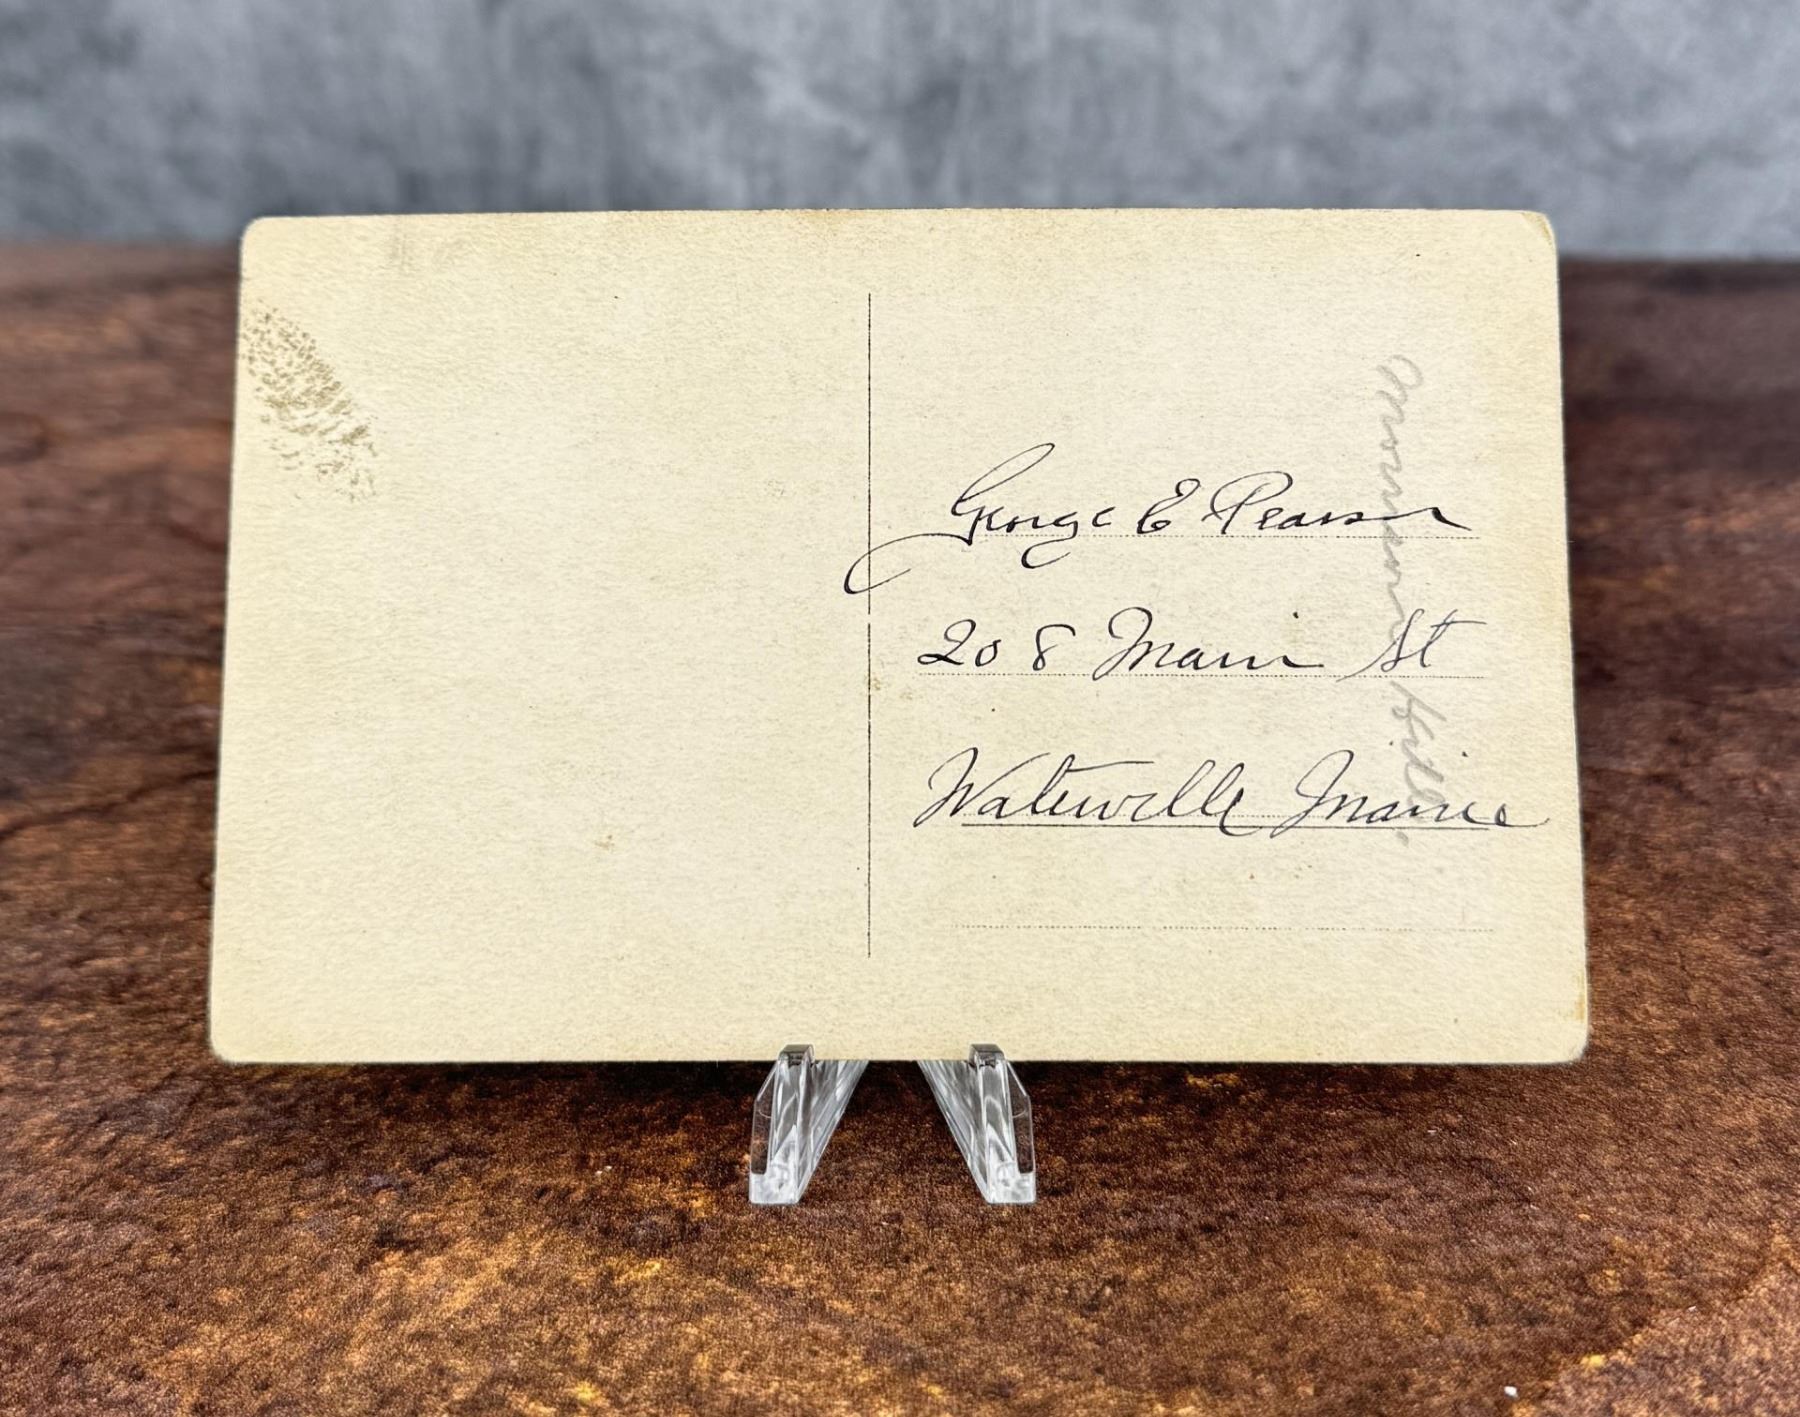 George E Pearson
208 Main St
Waterville Maine
Hill.